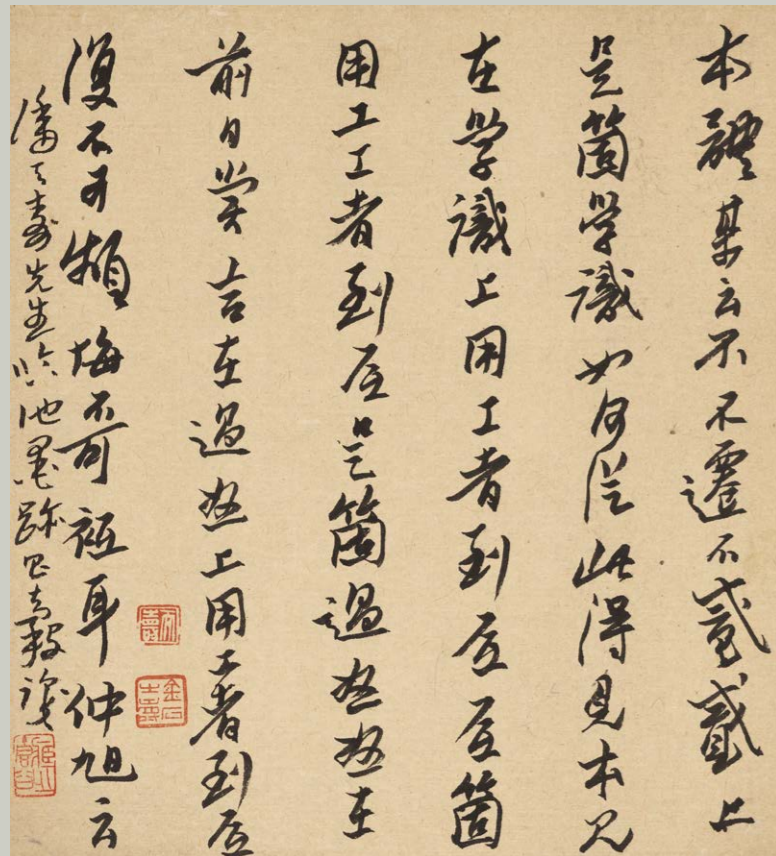 本體某云不不遷不貳貳止
是箇學識如何從此得見本見
在學識上用工者到底底箇
用工工者到底是箇過怒怒在
前日嘗言在過怒上用工者到底
復不可頻悔不可祗耳仲旭云
潘天壽先生臨池墨跡